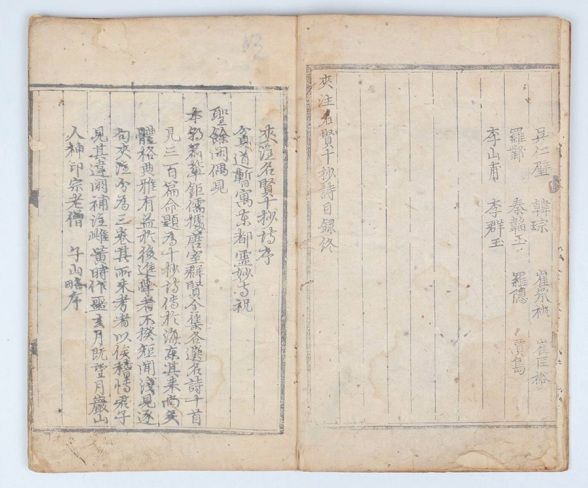 吳仁璧 韓琮 崔承祐 崔匡裕
羅鄴 秦韜玉 羅隱 賈島
李山甫 李群玉
夾注名賢十抄詩目録終
夾注名賢十抄詩序
貧道暫寓東都靈妙寺祝
聖餘閑偶見
本朝名輩鉅儒據唐室群賢全集各選名詩十首
凡三百篇命題為十抄詩傳於海東其來尚矣
體格典雅有益於後進學者不揆短聞淺見逐
句夾注分為三卷其所未考者以俟稽博君子
見其違闕補注雌黃時作噩玄月既望月巖山
人神印宗老僧 子山略序